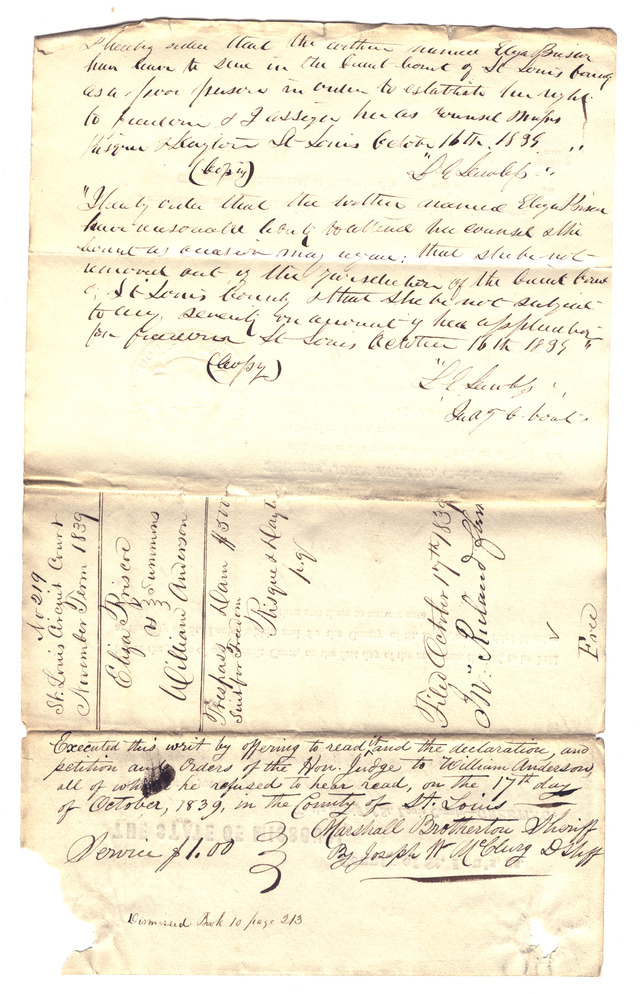 I hereby order that the within named Eliza Briscoe
have leave to sue in the Circuit Court of St Louis County
as a poor person in order to establish her right
to freedom & I assign her as Counsel Messrs
Risque & Slayton St Louis October 16th, 1839 "
(Copy)
"I hereby order that the within named Eliza Briscoe
have reasonable liberty to attend her counsel & the
Court as occasion may require; that she be not
removed out of the jurisdiction of the Circuit Court
of St Louis County & that she be not subject
to any severity on account of her application
for freedom St Louis October 16th 1839"
(Copy)
No 219
St. Louis Circuit Court
November Term 1839
Eliza Briscoe
vs } Summons
William Anderson
Trespass Dam $500
Suit for Freedom
Risque &
p.q
Filed October 17th 1839
Jno Ruland Clerk
Free
Executed this writ by offering to read it and the declaration, and
petition and orders of the Hon. Judge to William Anderson,
all of which he refused to hear read, on the 17th day
of October, 1839, in the County of St. Louis
Marshall Brotherton Sheriff
Service $1.00
By Joseph W McClurg D Shff
Dismissed Book 10 page 213